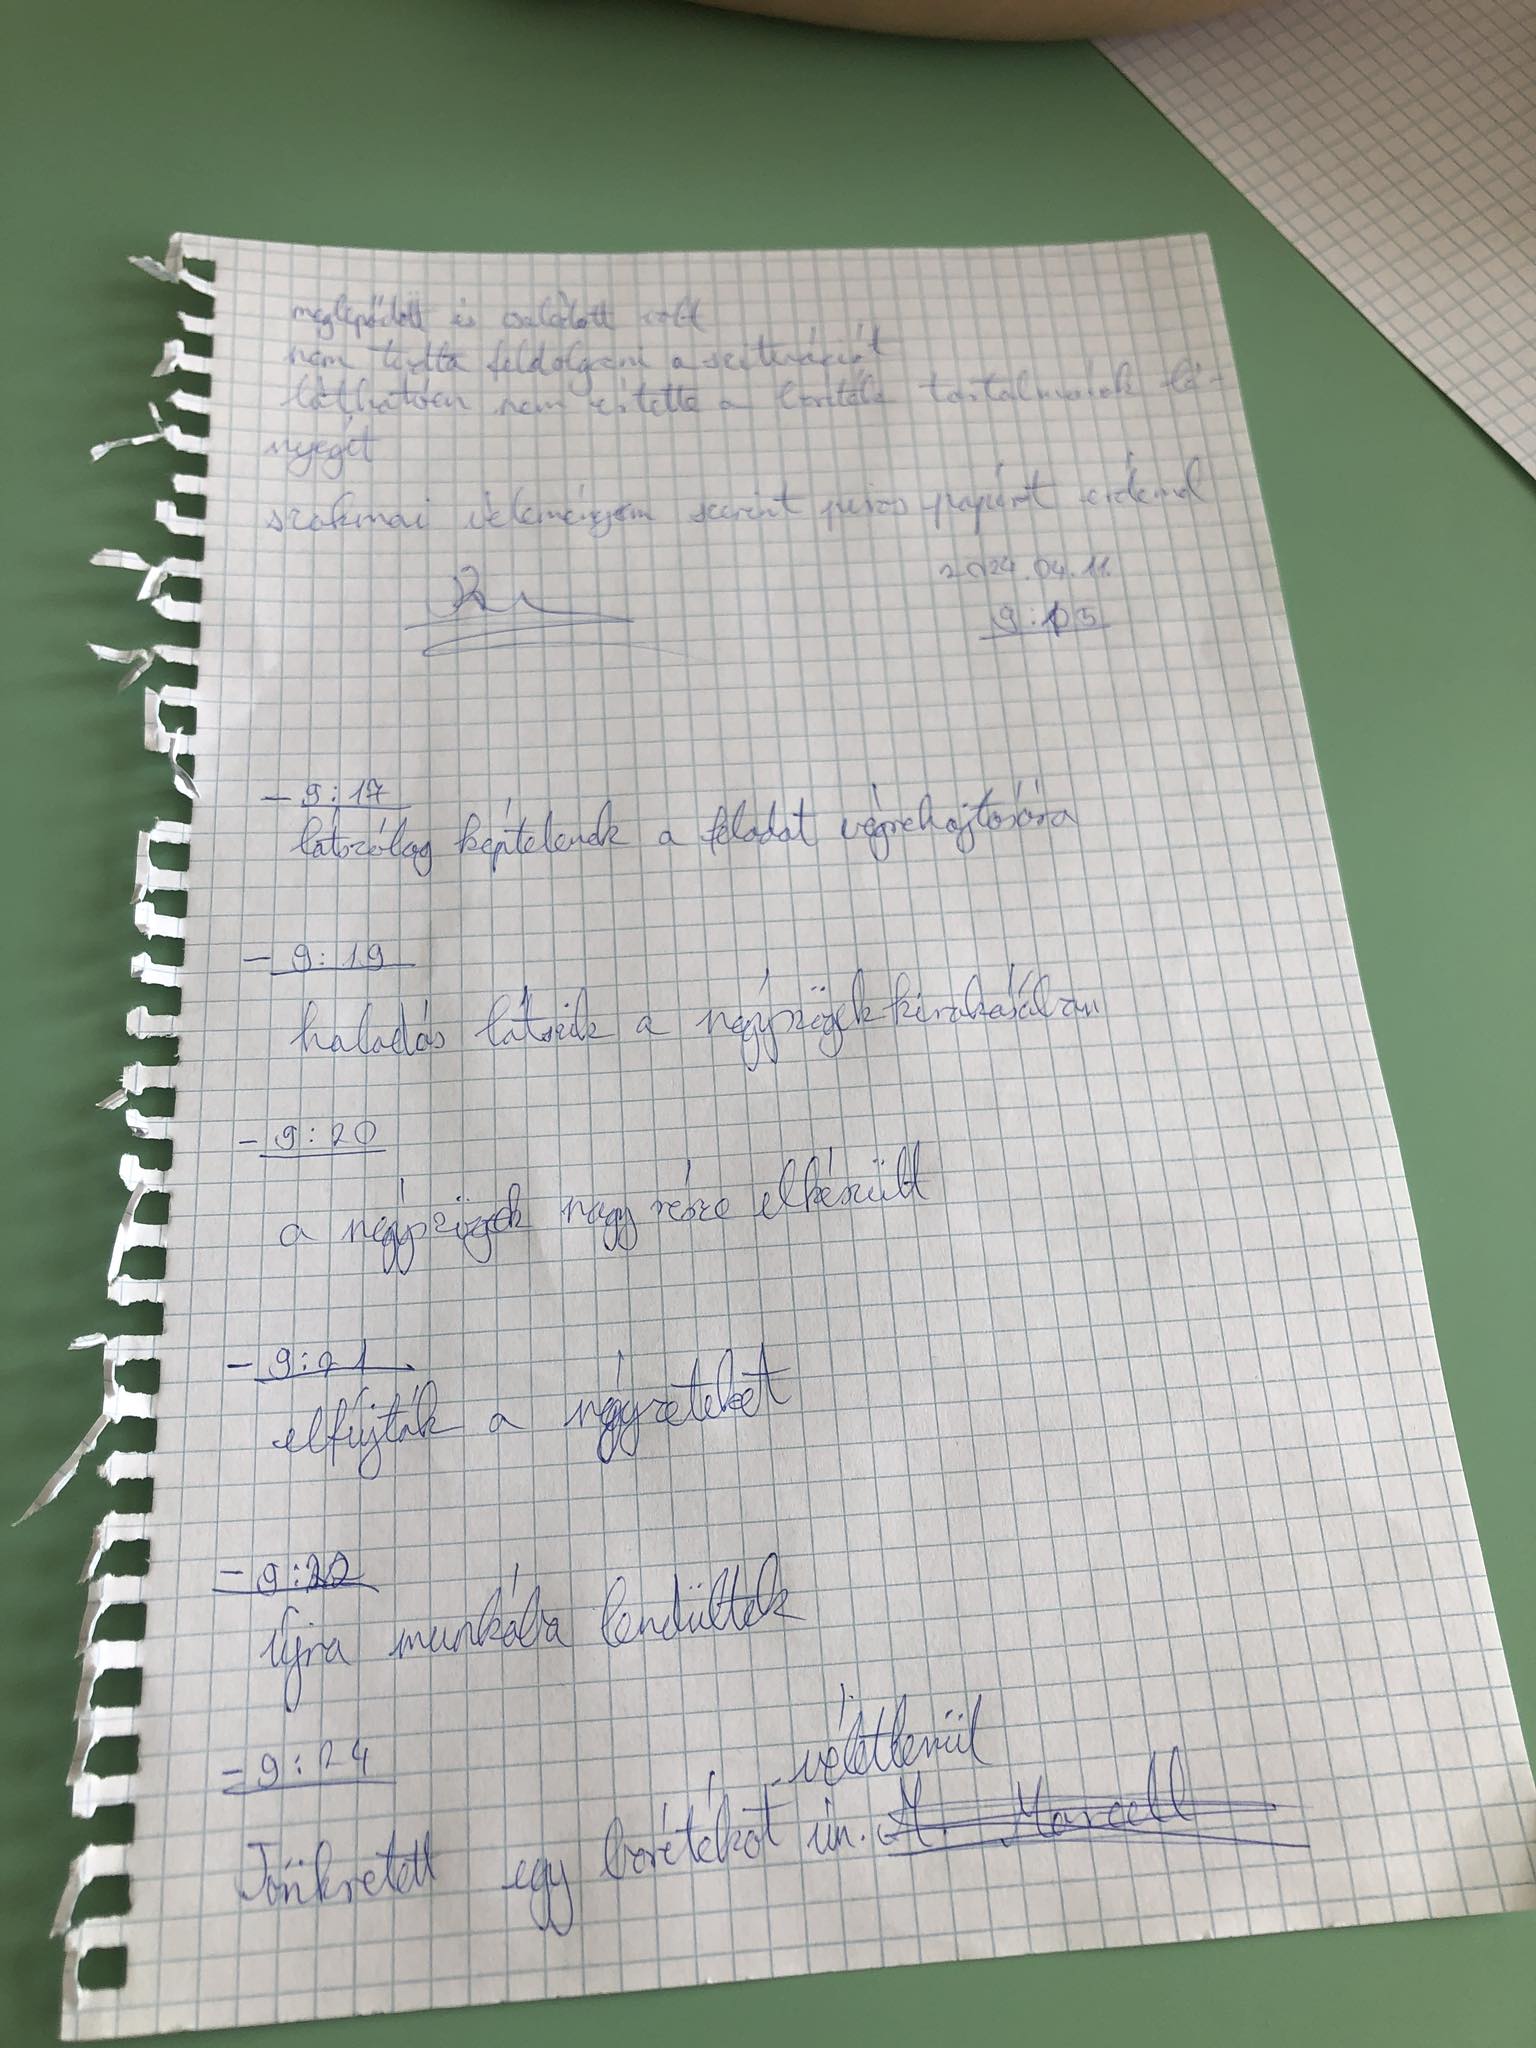 meglepődött és csalódott volt
nem tudta feldolgozni a szituációt
láthatóan nem értette a boríték tartalmának lé-
nyegét
szakmai véleményem szerint piros papírt érdemel
2024.04.11.
9:05
- 9:17
látszólag képtelenek a feladat végrehajtására
- 9:19
haladás látszik a négyszögek kirakásában
- 9:20
a négyszögek nagy része elkészült
- 9:21
elfújták a négyzeteket
- 9:22
újra munkába lendültek
- 9:24
véletlenül
Tönkretett egy borítékot ún. M. Marcell